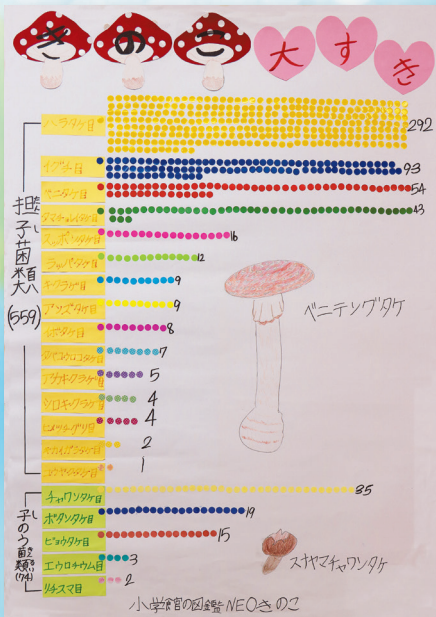 きのこ大すき
ハラタケ目 292
イグチ目 93
ベニタケ目 54
タマチョレイタケ目 43
スッポンタケ目 16
ラッパタケ目 12
キクラゲ目 9
アンズタケ目 9
イボタケ目 8
タバコウロコタケ目 7
アカキクラゲ目 5
シロキクラゲ目 4
4
2
1
担子菌類
(559)
ベニテングタケ
チャワンタケ目 35
ボタンタケ目 19
ビョウタケ目 15
エウロチウム目 3
リチスマ目 2
子のう菌類
(74)
スナヤマチャワンタケ
小学館の図鑑NEOきのこ